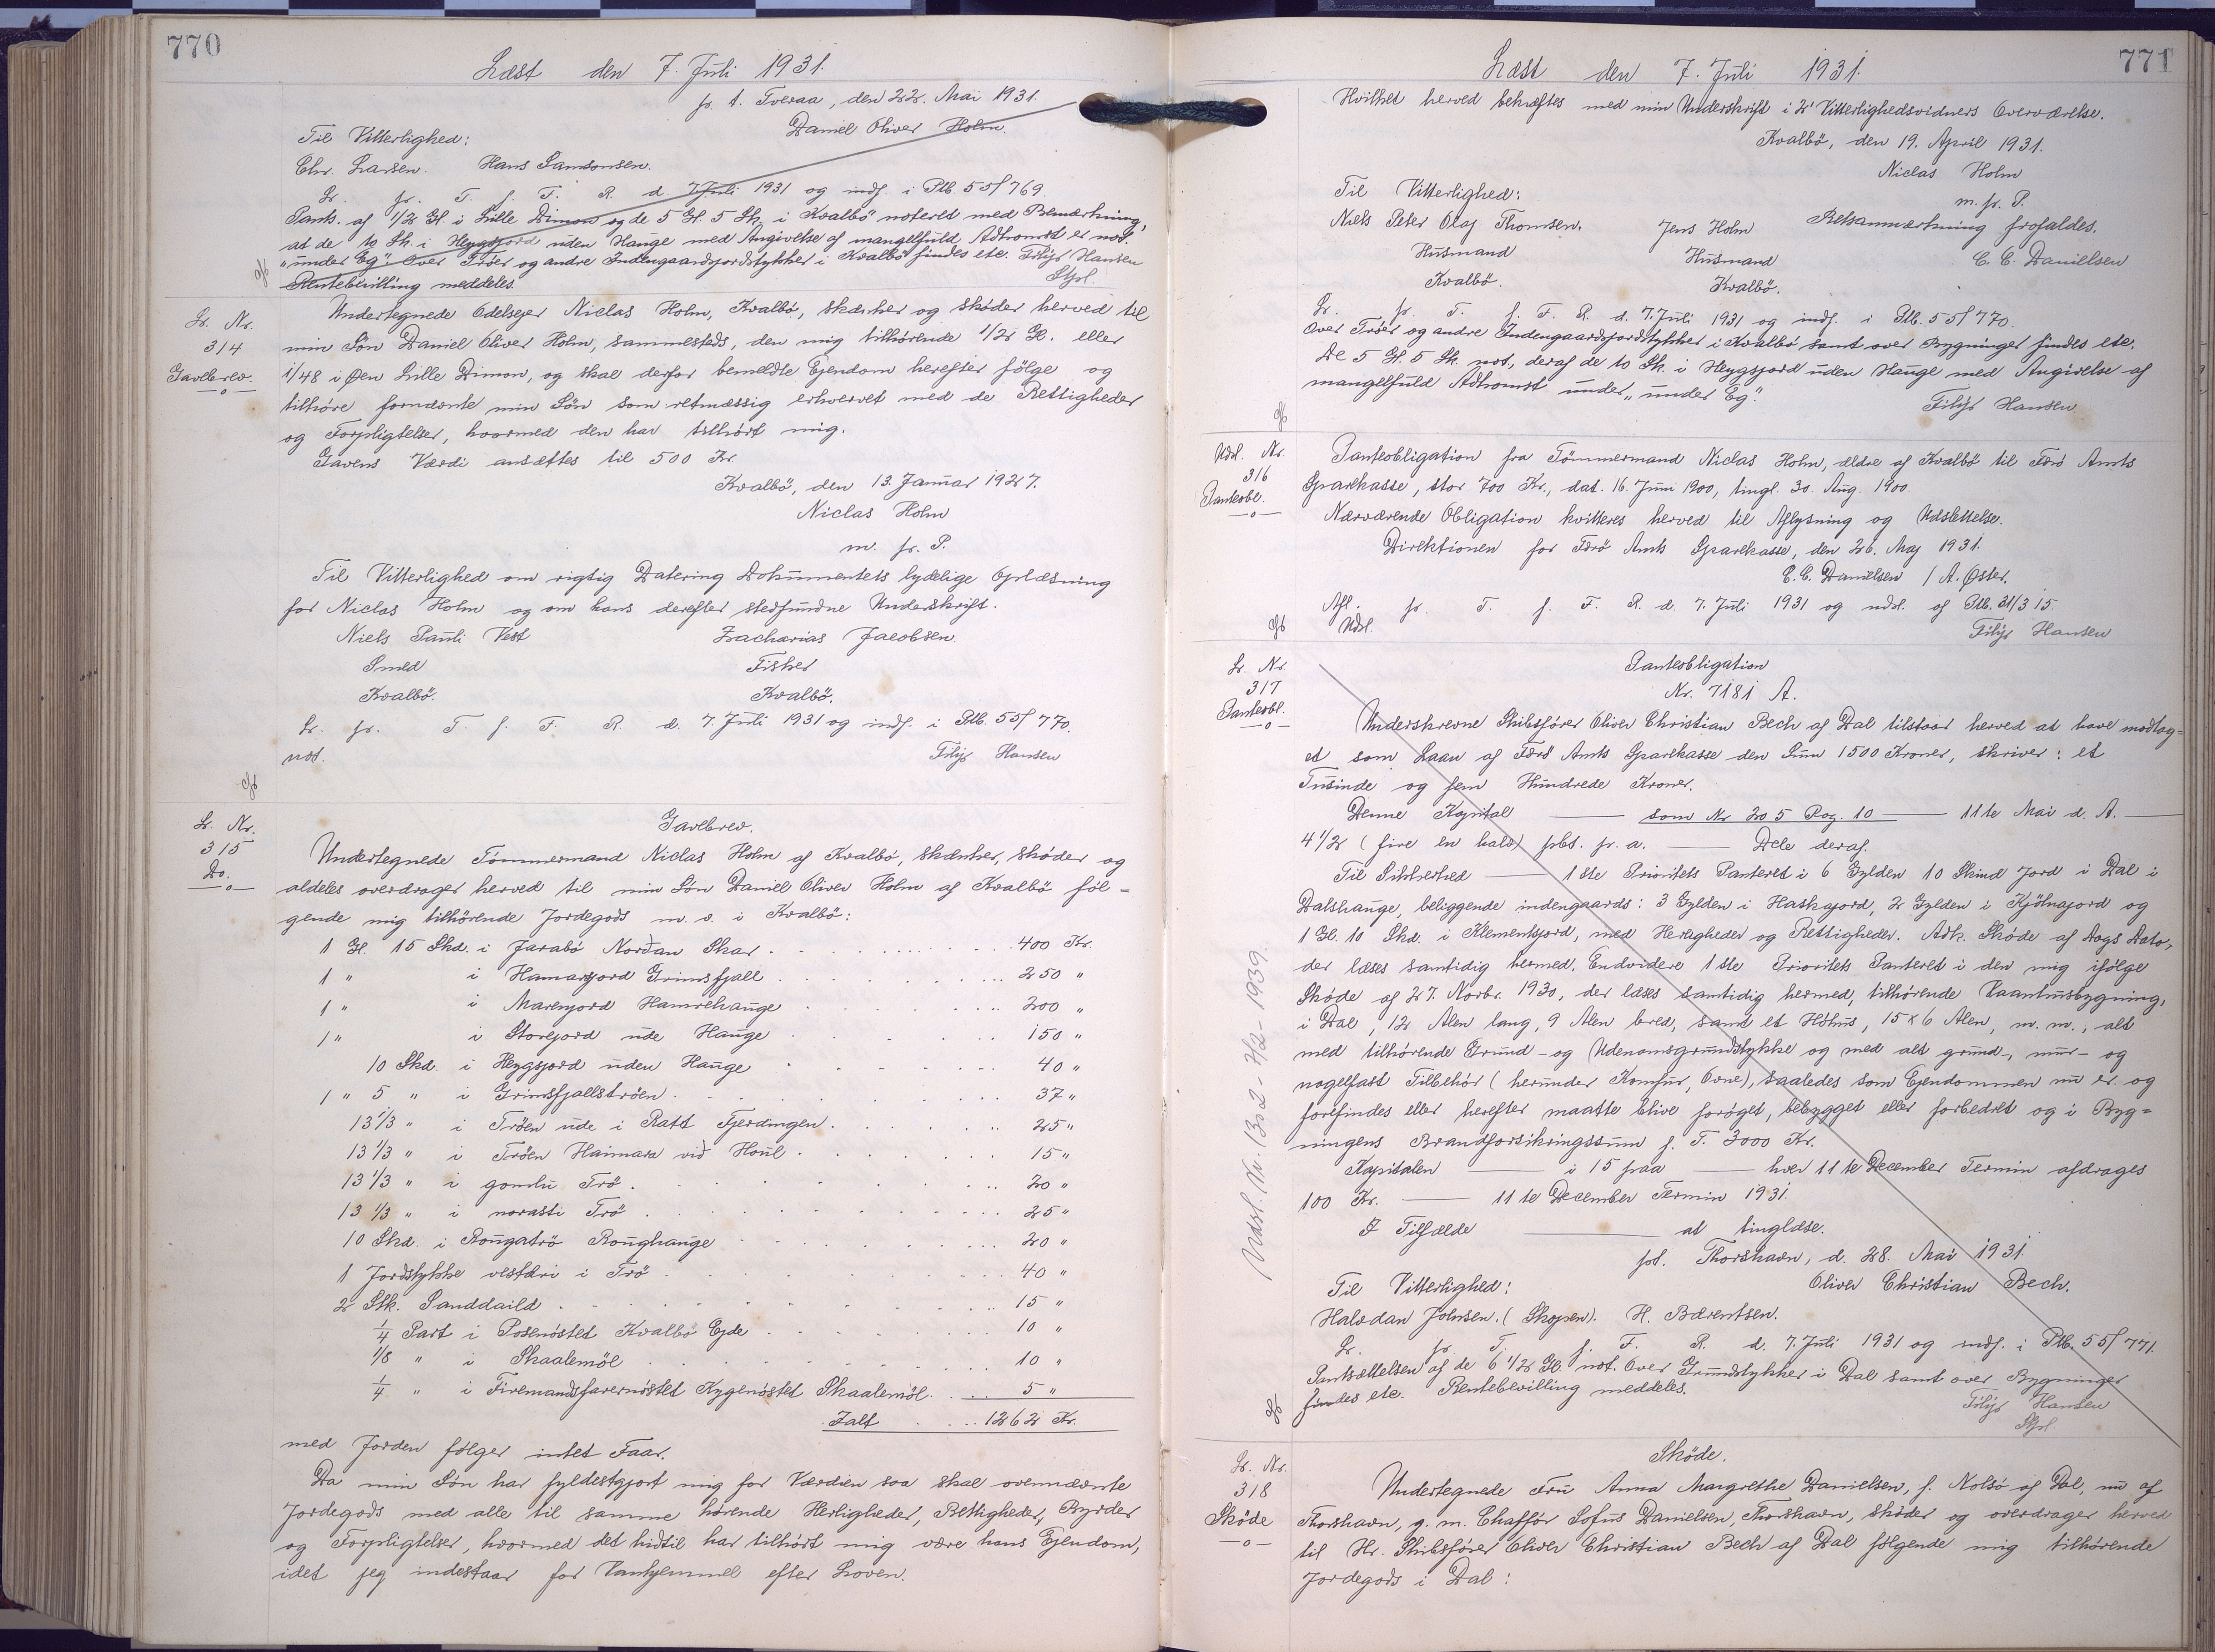 770
Læst den 7. Juli 1931.
p. t. Tveraa, den 22. Mai 1931.
Daniel Oliver Holm.
Til Vitterlighed:
Chr. Larsen. Hans Samsonsen.
Lr. pr. T. f. F. R. d. 7 Juli 1931 og indf. i Ptb. 55/769.
Pants. af 1/2 Gl. i Lille Dimon og de 5 Gl. 5 Sk. i Kvalbö noteret med Bemærkning,
at de 10 Sk. i Heygsjord uden Hauge med Angivelse af mangelfuld Adkomst er not.
"under Eg". Over Tröer og andre Indengaardsjordstykker i Kvalbö findes etc. Filip Hansen
Rentebevilling meddeles. Stfl.
Lr. Nr.
314
Gavebrev.
Undertegnede Odelsejer Niclas Holm, Kvalbö, skænker og skøder herved til
min Sön Daniel Oliver Holm, sammesteds, den mig tilhörende 1/2 Gl. eller
1/48 i Øen Lille Dimon, og skal derfor bemeldte Ejendom herefter følge og
tilhöre fornævnte min Sön som retmæssig erhvervet med de Rettigheder
og Forpligtelser, hvormed den har tilhørt mig.
Gavens Værdi ansættes til 500 Kr.
Kvalbö, den 13. Januar 1927.
Niclas Holm
m. p. P.
Til Vitterlighed om rigtig Datering Dokumentets lydelige Oplæsning
for Niclas Holm og om hans derefter stedfundne Underskrift.
Niels Pauli Vest Zacharias Jacobsen.
Smed Fisker
Kvalbö. Kvalbö.
Lr. pr. T. f. F. R. d. 7. Juli 1931 og indf. i Ptb. 55/770.
not. Filip Hansen
Lr. Nr.
315
Do.
Gavebrev.
Undertegnede Tømmermand Niclas Holm af Kvalbö, skænker, skøder og
aldeles overdrager herved til min Sön Daniel Oliver Holm af Kvalbö föl-
gende mig tilhörende Jordegods m. v. i Kvalbö:
1 Gl. 15 Skd. i Jarabö Norðan Skar. 400 Kr.
1 " i Hamarjord Grimsfjall 250 "
1 " i Marenjord Hamrehauge 200 "
1 " i Storejord ude Hauge 150 "
10 Skd. i Heygsjord uden Hauge 40 "
1 " 5 " i Grimsfjallströen. 37 "
13 1/3 " i Tröen ude i Ratt Fjerdingen. 25 "
13 1/3 " i Tröen Haimara við Houl. 15 "
13 1/3 " i gomlu Trö. 20 "
13 1/3 " i norasti Trö. 25 "
10 Skd. i Rougatrö Roughauge 20 "
1 Jordstykke vestari i Trö. 40 "
2 Stk. Sanddaild. 15 "
1/4 Part i Posenöstet Kvalbö Ejde 10 "
1/8 " i Skaalemöl 10 "
1/4 " i Firemandsfarernöstet Kygenöstet Skaalemöl. 5 "
Ialt 1262 Kr.
med Jorden følger intet Faar.
Da min Søn har fyldestgjort mig for Værdien saa skal ovennævnte
Jordegods med alle til samme hørende Herligheder, Rettigheder, Byrder
og Forpligtelser, hvormed det hidtil har tilhört mig være hans Ejendom,
idet jeg indestaar for Vanhjemmel efter Loven.
771
Læst den 7. Juli 1931.
Hvilket herved bekræftes med min Underskrift i 2' Vitterlighedsvidners Overværelse.
Kvalbö, den 19. April 1931.
Niclas Holm
m. p. P.
Til Vitterlighed:
Niels Peter Olaf Thomsen. Jens Holm Retsanmærkning frafaldes.
Husmand Husmand C. C. Danielsen
Kvalbö. Kvalbö.
Lr. pr. T. f. F. R. d. 7. Juli 1931 og indf. i Ptb. 55/770.
Over Tröer og andre Indengaardsjordstykker i Kvalbö samt over Bygninger findes etc.
De 5 Gl. 5 Sk. not., deraf de 10 Sk. i Heygsjord uden Hauge med Angivelse af
mangelfuld Adkomst under "under Eg".
Filip Hansen
Udsl. Nr.
316
Panteobl.
Panteobligation fra Tömmermand Niclas Holm, ældre af Kvalbö til Færö Amts
Sparekasse, stor 700 Kr., dat. 16. Juni 1900, tingl. 30. Aug. 1900.
Nærværende Obligation kvitteres herved til Aflysning og Udslettelse.
Direktionen for Færö Amts Sparekasse, den 26. Maj 1931.
C. C. Danielsen / A. Öster.
Afl. pr. T. f. F. R. d. 7. Juli 1931 og udsl. af Ptb. 31/315.
Udsl. Filip Hansen
Lr. Nr.
317
Panteobl.
Panteobligation
Nr. 7181 A.
Underskrevne Skibsfører Oliver Christian Bech af Dal tilstaar herved at have modtag-
et som Laan af Færö Amts Sparekasse den Sum 1500 Kroner, skriver: et
Tusinde og fem Hundrede Kroner.
Denne Kapital — som Nr 205 Pag. 10 — 11te Mai d. A. —
4 1/2 (fire en halv) pct. p. a. — Dele deraf.
Til Sikkerhed — 1ste Prioritets Panteret i 6 Gylden 10 Skind Jord i Dal i
Dalshauge, beliggende indengaards: 3 Gylden i Haskajord, 2 Gylden i Kjölnajord og
1 Gl. 10 Skd. i Klementsjord, med Herligheder og Rettigheder. Adk. Sköde af Dags Dato,
der læses samtidig hermed. Endvidere 1ste Prioritets Panteret i den mig ifölge
Sköde af 27. Novbr. 1930, der læses samtidig hermed, tilhörende Vaanhusbygning,
i Dal, 12 Alen lang, 9 Alen bred, samt et Höhus, 15 x 6 Alen, m. m., alt
med tilhörende Grund- og Udenomsgrundstykke og med alt grund-, mur- og
nagelfast Tilbehör (herunder Komfur, Ovne), saaledes som Ejendommen nu er og
forefindes eller herefter maatte blive forøget, bebygget eller forbedret og i Byg=
ningens Brandforsikringssum p. T. 3000 Kr.
Kapitalen — i 15 paa — hver 11te December Termin afdrages
100 Kr. — 11te December Termin 1931.
I Tilfælde — at tinglæse.
pt. Thorshavn, d. 28. Mai 1931.
Til Vitterlighed: Oliver Christian Bech.
Halvdan Johnsen. (Skopen). H. Bærentsen.
Lr. pr. T. f. F. R. d. 7. Juli 1931 og indf. i Ptb. 55/771.
Pantsættelsen af de 6 1/2 Gl. not. Over Grundstykker i Dal samt over Bygninger
findes etc. Rentebevilling meddeles.
Filip Hansen
Stfl.
Udsl. Nr. 1302 - 7/2 - 1939.
Lr. Nr.
318
Sköde
Sköde.
Undertegnede Fru Anna Margrethe Danielsen, f. Nolsö af Dal, nu af
Thorshavn, g. m. Chafför Sofus Danielsen, Thorshavn, sköder og overdrager herved
til Hr. Skibsförer Oliver Christian Bech af Dal fölgende mig tilhörende
Jordegods i Dal: